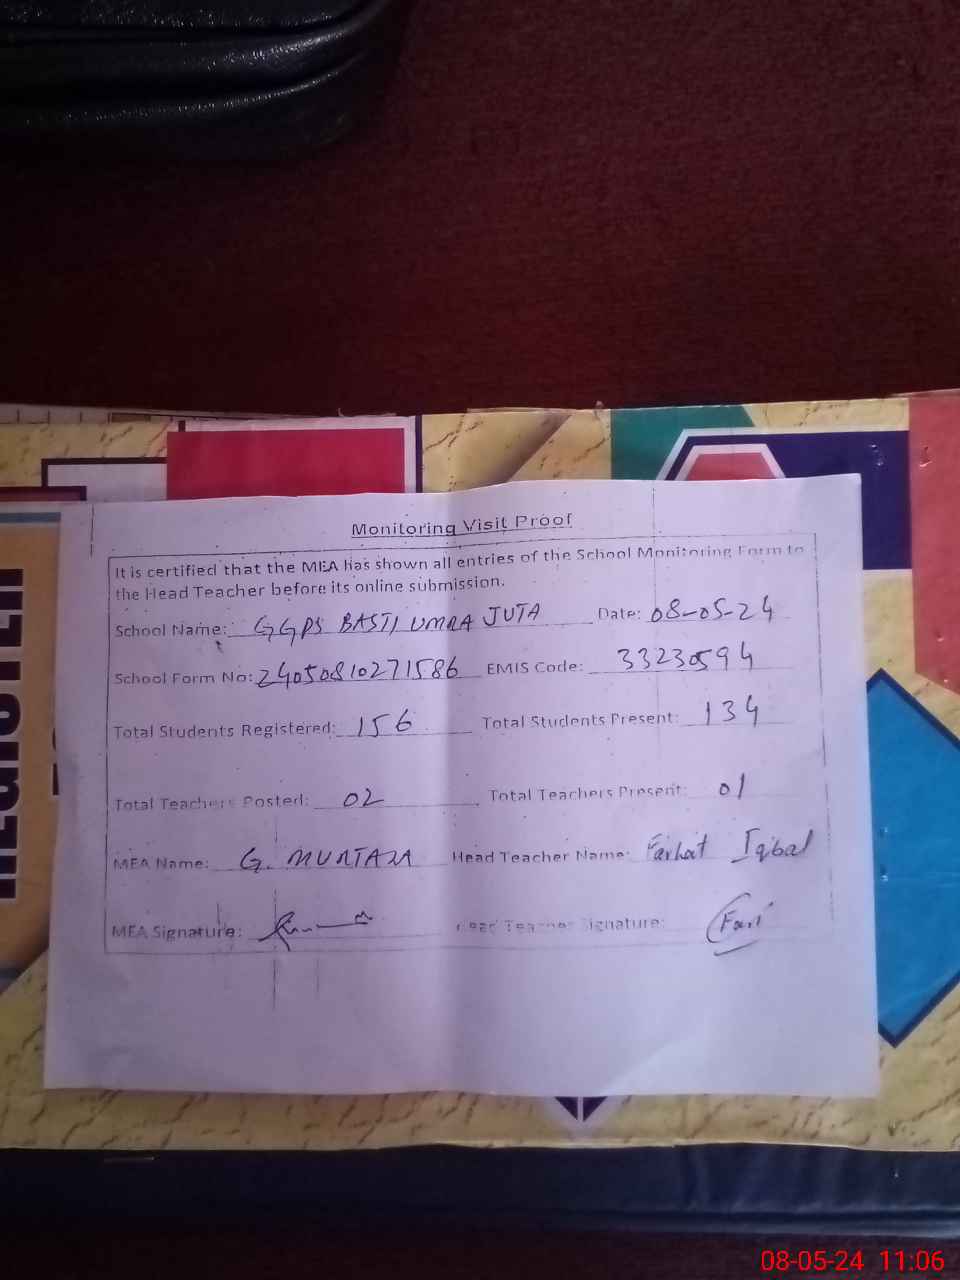 Monitoring Visit Proof
It is certified that the MEA has shown all entries of the School Monitoring Form to
the Head Teacher before its online submission.
School Name: GGPS BASTI UMRA JUTA Date: 08-05-24
School Form No: 24050810271586 EMIS Code: 33230594
Total Students Registered: 156 Total Students Present: 134
Total Teachers Posted: 02 Total Teachers Present: 01
MEA Name: G. MURTAZA Head Teacher Name: Farhat Iqbal
MEA Signature: Head Teacher Signature: Fari
08-05-24 11:06